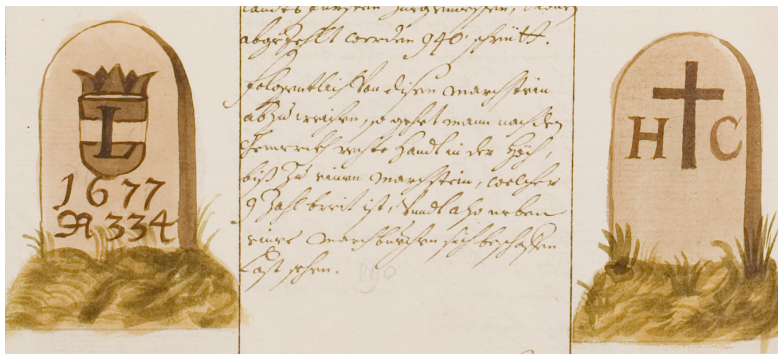 L
1677
N 334
abgezehlt werden 940 schritt.
Folgentlich von disem Marchstein
abzuweichen, so gehet mann nach den
rechte Handt in der Höch,
biß zu einem Marchstein, welcher
9 Zahl breit ist, undt also neben
einer sich beschachen
Last sehen.
190
H C